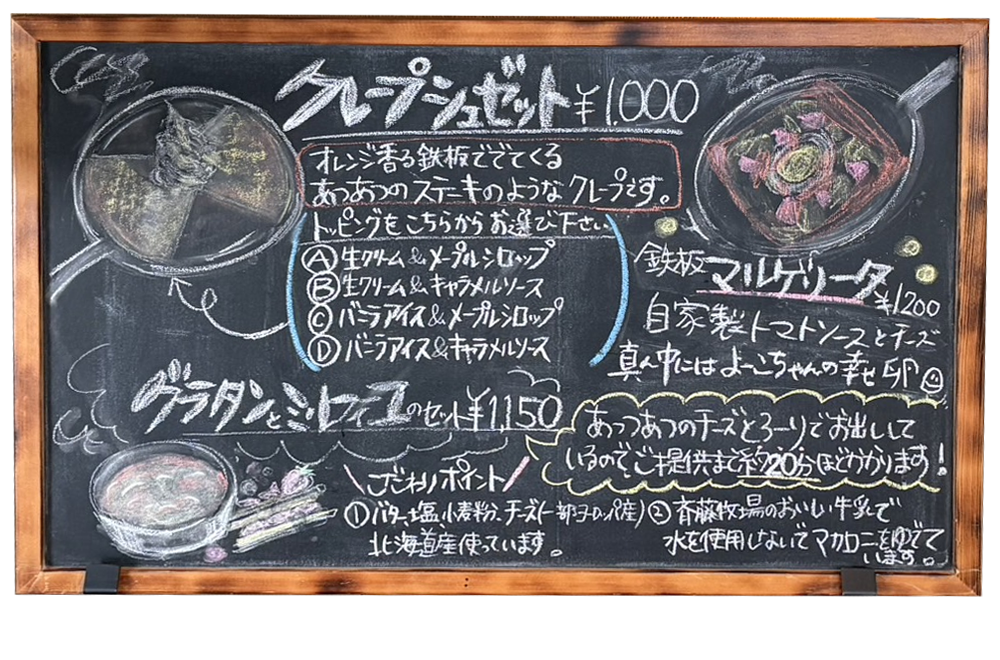 クレープシュゼット ¥1,000
オレンジ香る鉄板ででてくる
あつあつのステーキのようなクレープです。
トッピングをこちらからお選び下さい
Ⓐ生クリーム&メープルシロップ
Ⓑ生クリーム&キャラメルソース
Ⓒバニラアイス&メープルシロップ
Ⓓバニラアイス&キャラメルソース
鉄板マルゲリータ
¥1200
自家製トマトソースとチーズ
真ん中にはよーこちゃんの幸せ卵
グラタンとミルフィユのセット¥1,150
あっつあつのチーズとろーりでお出しして
いるのでご提供まで約20分ほどかかります!
こだわりポイント
①バター、塩、小麦粉、チーズ(一部ヨーロッパ産)
北海道産使っています。
②斉藤牧場のおいしい牛乳で
水を使用しないでマカロニをゆでて
います。